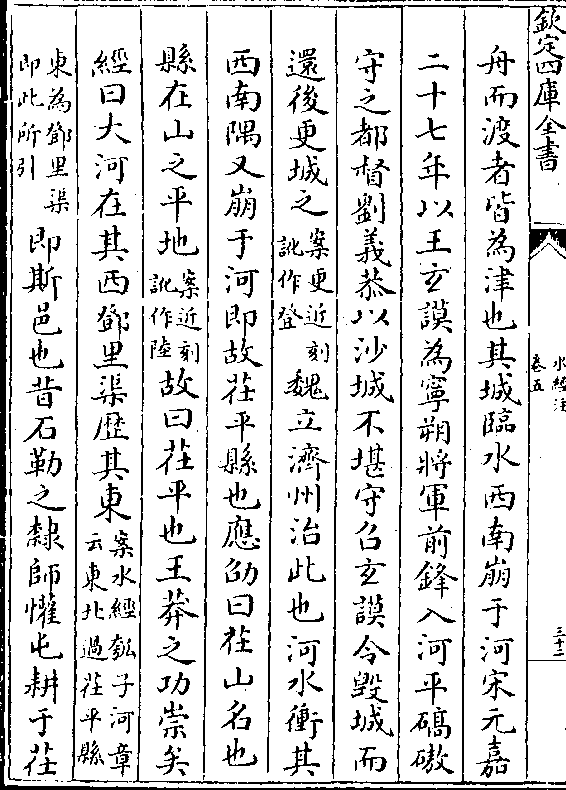 欽定四庫全書
水經注
卷五
三十二
舟而渡者皆為津也其城臨水西南崩于河宋元嘉
二十七年以王玄謨為寧朔將軍前鋒入河平碻磝
守之都督劉義恭以沙城不堪守召玄謨令毀城而
還後更城之案更近刻訛作登魏立濟州治此也河水衝其
西南隅又崩于河即故茌平縣也應劭曰茌山名也
縣在山之平地案近刻訛作陸故曰茌平也王莽之功崇矣
經曰大河在其西鄧里渠歴其東案水經瓠子河章云東北過茌平縣
東為鄧里渠即此所引即斯邑也昔石勒之隸師懽屯耕于茌